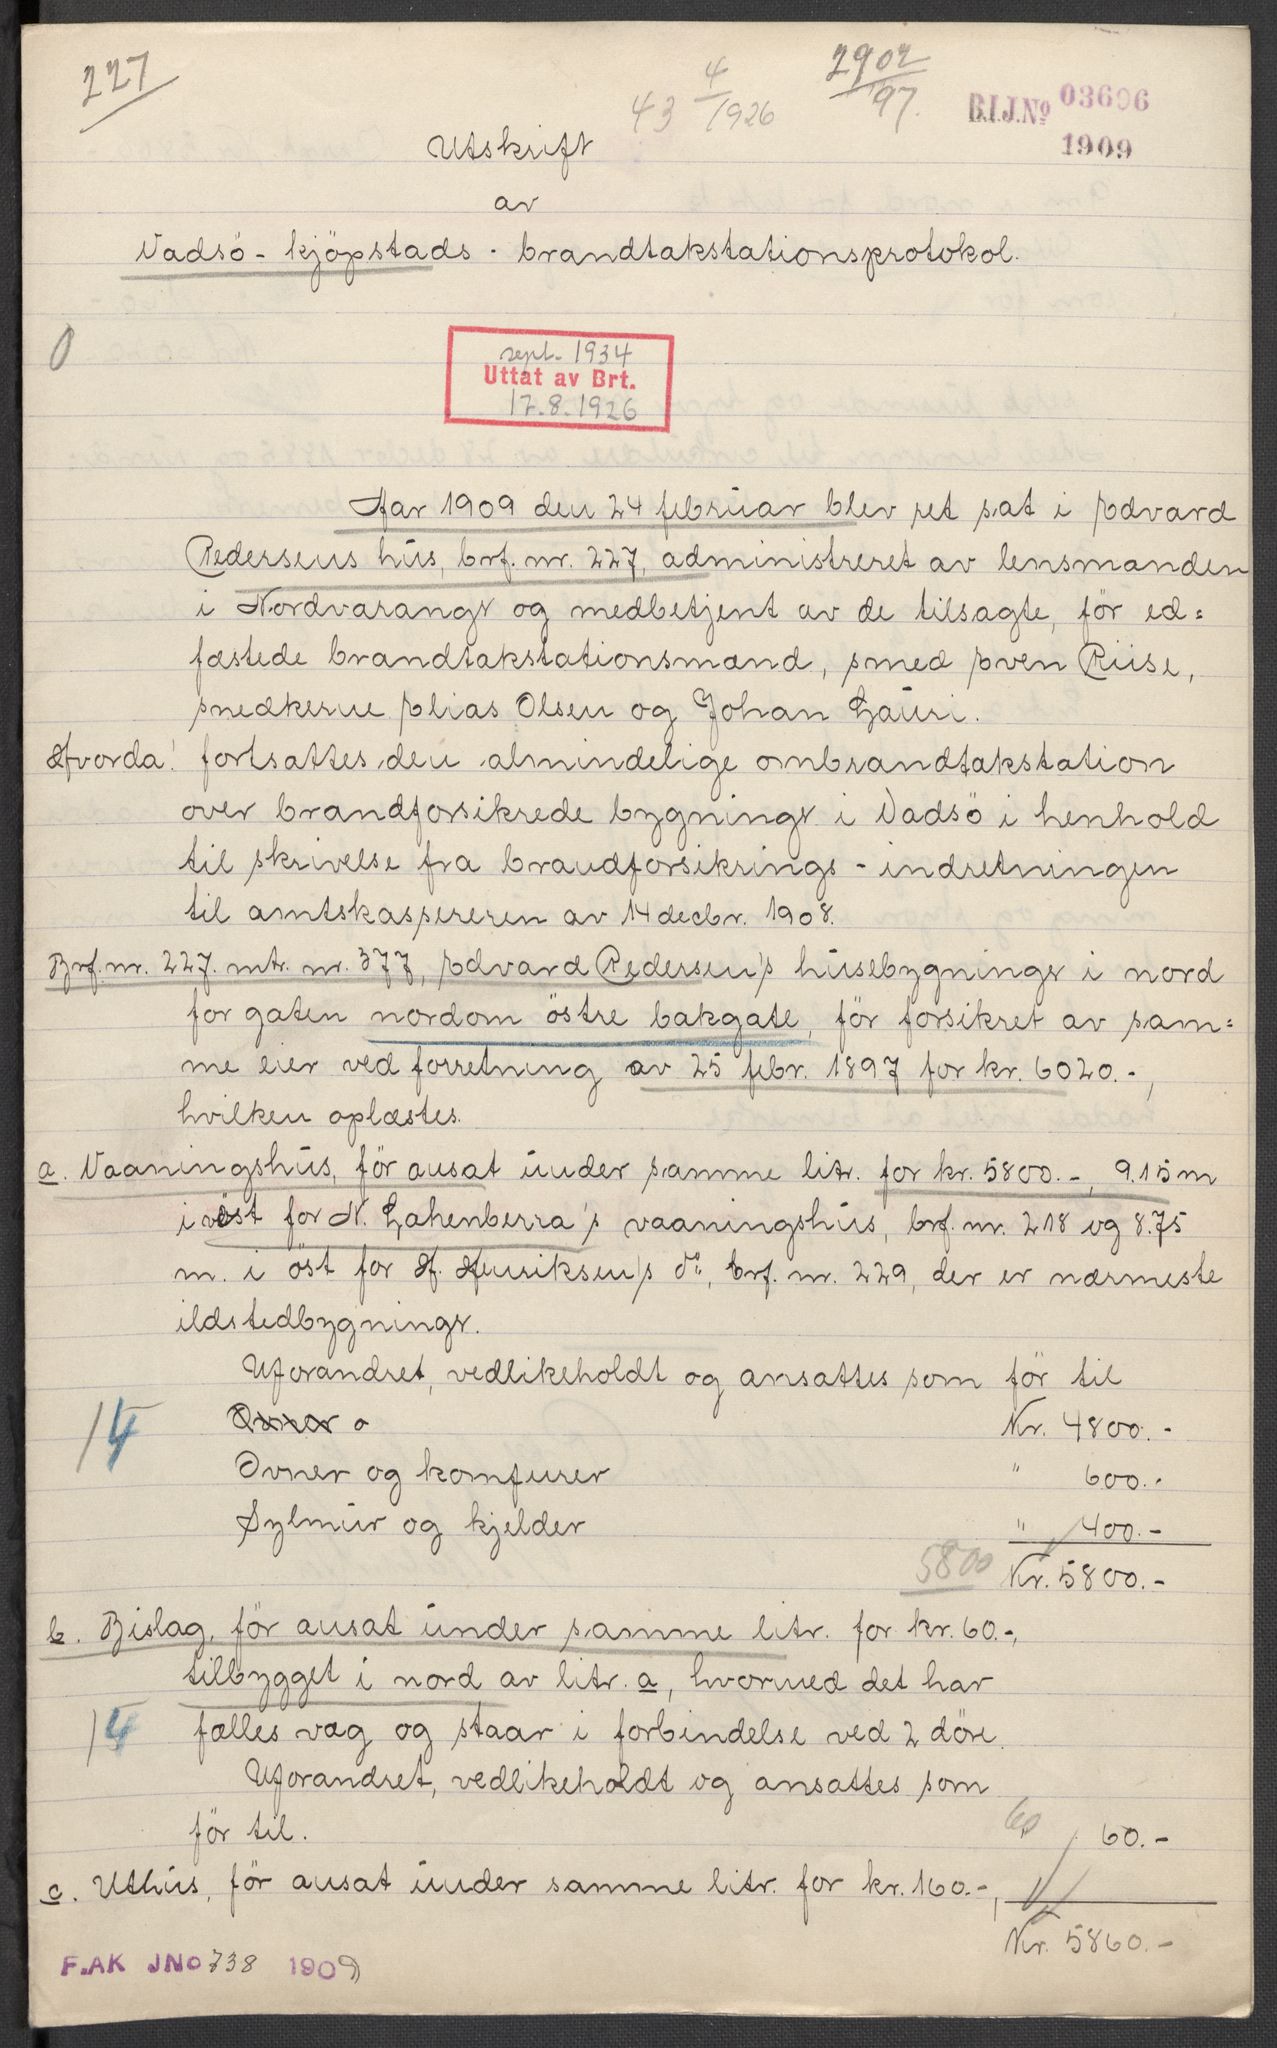 227
43 4/1926
2902/97.
B.I.J.Nº 03696
1909
Utskrift
av
Vadsö - kjöpstads - brandtakstationsprotokol.
0
sept. 1934
Uttat av Brt.
17.8.1926
Aar 1909 den 24 februar blev ret sat i Edvard
Pedersens hus, brf. nr. 227, administreret av lensmanden
i Nordvaranger og medbetjent av de tilsagte, för ed=
fæstede brandtakstationsmænd, smed Even Riise,
snedkerne Elias Olsen og Johan Lauri.
Hvorda! fortsattes den almindelige ombrandtakstation
over brandforsikrede bygninger i Vadsö i henhold
til skrivelse fra brandforsikrings - indretningen
til amtskassereren av 14 decbr. 1908.
Brf. nr. 227. mtr. nr. 377, Edvard Pedersen's husebygninger i nord
for gaten nordom östre bakgate, för forsikret av sam=
me eier ved forretning av 25 febr. 1897 for kr. 6020.-,
hvilken oplæstes.
a. Vaaningshus, för ansat under samme litr. for kr. 5800.-, 9.15 m
i vest for N. Lahenberra's vaaningshus, brf. nr. 218 og 8.75
m. i öst for H. Henriksen's do, brf. nr. 229, der er nærmeste
ildstedbygninger.
Uforandret, vedlikeholdt og ansattes som för til
14 Kr. 4800.-
Ovner og komfurer " 600.-
Sylmur og kjelder " 400.-
5800 Kr. 5800.-
b. Bislag, för ansat under samme litr. for kr. 60.-,
tilbygget i nord av litr. a, hvormed det har
14 fælles væg og staar i forbindelse ved 2 döre.
Uforandret, vedlikeholdt og ansattes som
för til. 60 60.-
c. Uthus, för ansat under samme litr. for kr. 160.-,
Kr. 5860.-
F.AK JNo 738 1909